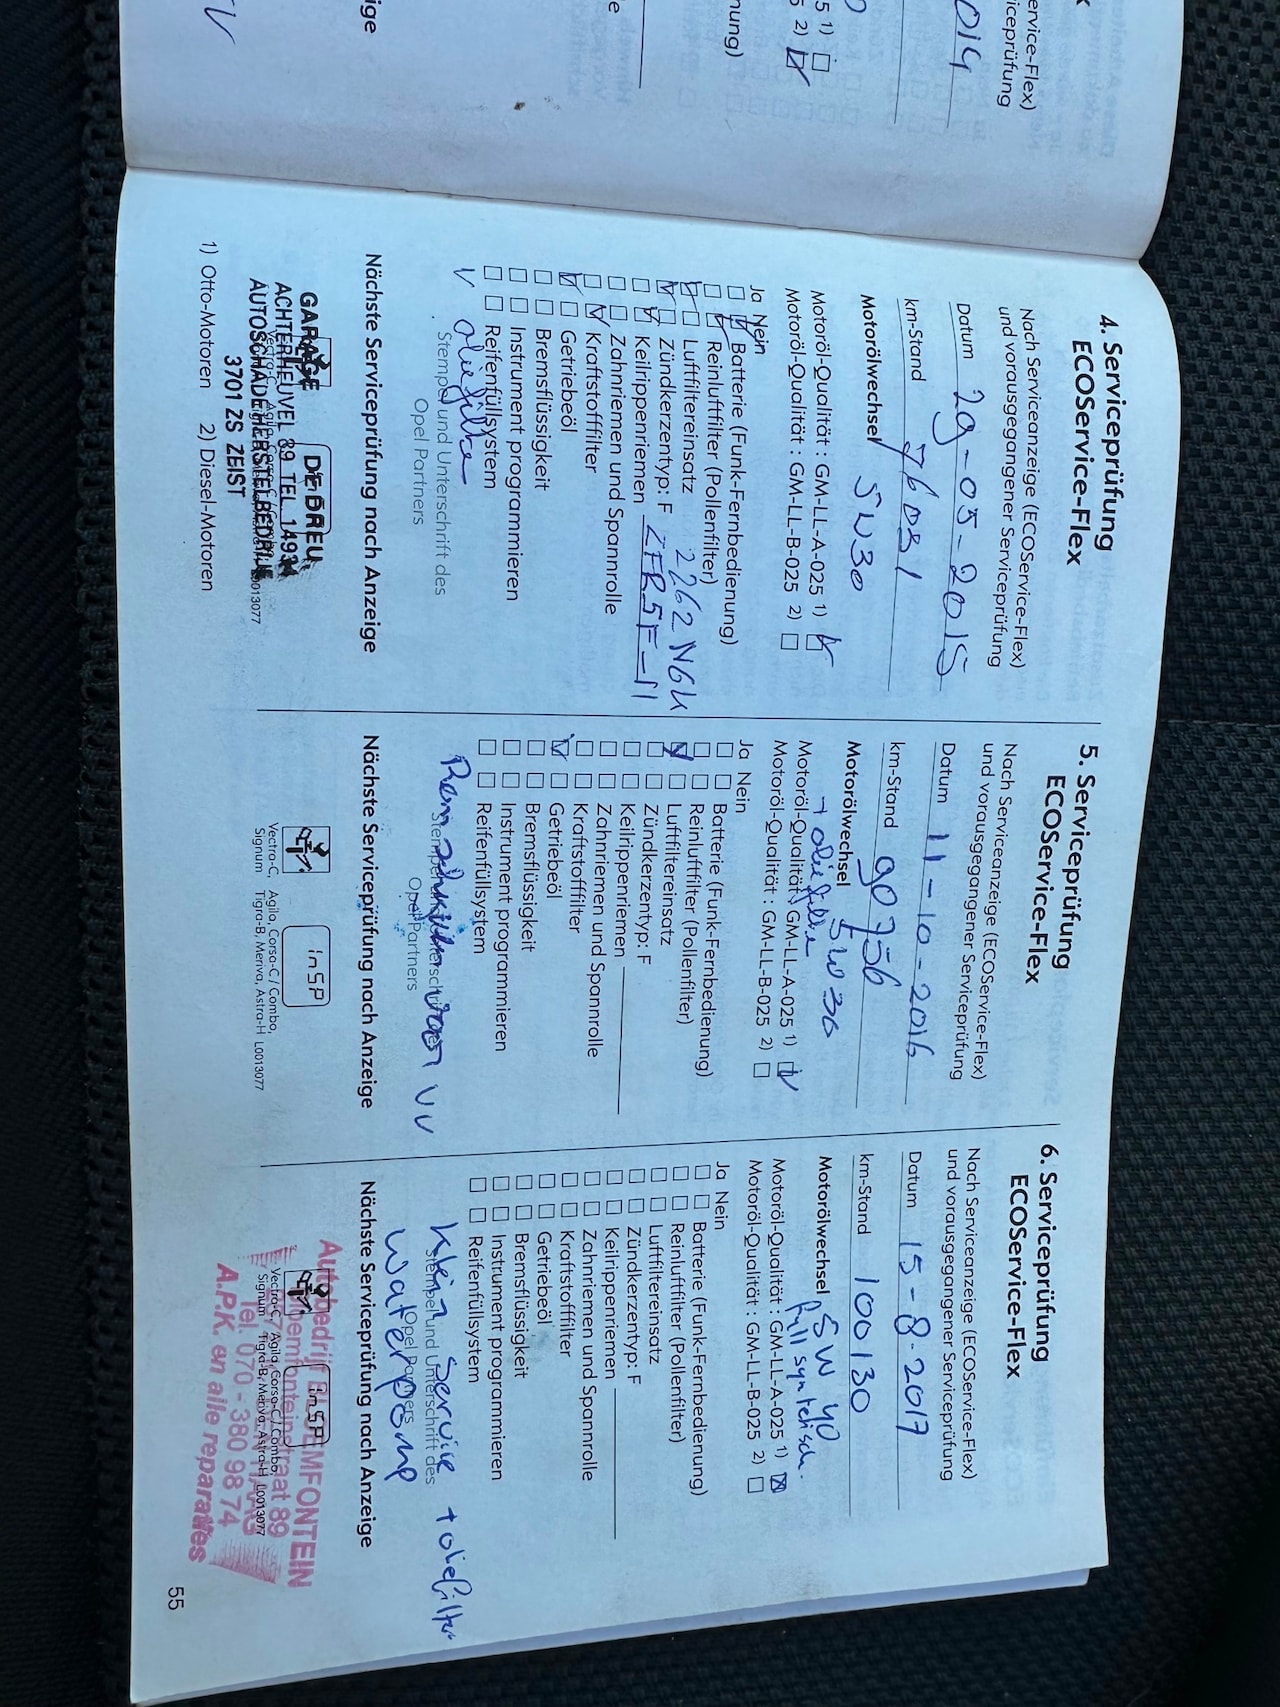 014
4. Serviceprüfung
ECOService-Flex
Nach Serviceanzeige (ECOService-Flex)
und vorausgegangener Serviceprüfung
Datum 29-05-2015
km-Stand 76051
Motorölwechsel 5W30
Motoröl-Qualität : GM-LL-A-025 1)
Motoröl-Qualität : GM-LL-B-025 2)
Ja Nein
Batterie (Funk-Fernbedienung)
Reinluftfilter (Pollenfilter)
Luftfiltereinsatz
Zündkerzentyp: F 2262 NGK
Keilrippenriemen ZFR5F-11
Zahnriemen und Spannrolle
Kraftstofffilter
Getriebeöl
Bremsflüssigkeit
Instrument programmieren
Reifenfüllsystem
V oliefilter
Stempel und Unterschrift des
Opel Partners
Nächste Serviceprüfung nach Anzeige
GARAGE DE BREU
ACHTERHEUVEL 39 TEL.
AUTOSCHADEHERSTELBEDRIJF
3701 ZS ZEIST
1) Otto-Motoren 2) Diesel-Motoren
5. Serviceprüfung
ECOService-Flex
Nach Serviceanzeige (ECOService-Flex)
und vorausgegangener Serviceprüfung
Datum 11-10-2016
km-Stand 90756
Motorölwechsel 5W30
+ oliefilter
Motoröl-Qualität : GM-LL-A-025 1)
Motoröl-Qualität : GM-LL-B-025 2)
Ja Nein
Batterie (Funk-Fernbedienung)
Reinluftfilter (Pollenfilter)
Luftfiltereinsatz
Zündkerzentyp: F
Keilrippenriemen
Zahnriemen und Spannrolle
Kraftstofffilter
Getriebeöl
Bremsflüssigkeit
Instrument programmieren
Reifenfüllsystem
Opel Partners
Nächste Serviceprüfung nach Anzeige
inSP
Vectra-C, Agila, Corsa-C / Combo,
Signum Tigra-B, Meriva, Astra-H L0013077
6. Serviceprüfung
ECOService-Flex
Nach Serviceanzeige (ECOService-Flex)
und vorausgegangener Serviceprüfung
Datum 15-8-2017
km-Stand 100130
Motorölwechsel 5W40
full syntetisch.
Motoröl-Qualität : GM-LL-A-025 1)
Motoröl-Qualität : GM-LL-B-025 2)
Ja Nein
Batterie (Funk-Fernbedienung)
Reinluftfilter (Pollenfilter)
Luftfiltereinsatz
Zündkerzentyp: F
Keilrippenriemen
Zahnriemen und Spannrolle
Kraftstofffilter
Getriebeöl
Bremsflüssigkeit
Instrument programmieren
Reifenfüllsystem
Klein service + oliefilter
Stempel und Unterschrift des
Opel Partners
waterpomp
Nächste Serviceprüfung nach Anzeige
inSP
Vectra-C, Agila, Corsa-C / Combo,
Signum Tigra-B, Meriva, Astra-H L0013077
Autobedrijf BLOEMFONTEIN
Bloemfonteinstraat 89
Tel. 070 - 380 98 74
A.P.K. en alle reparaties
55